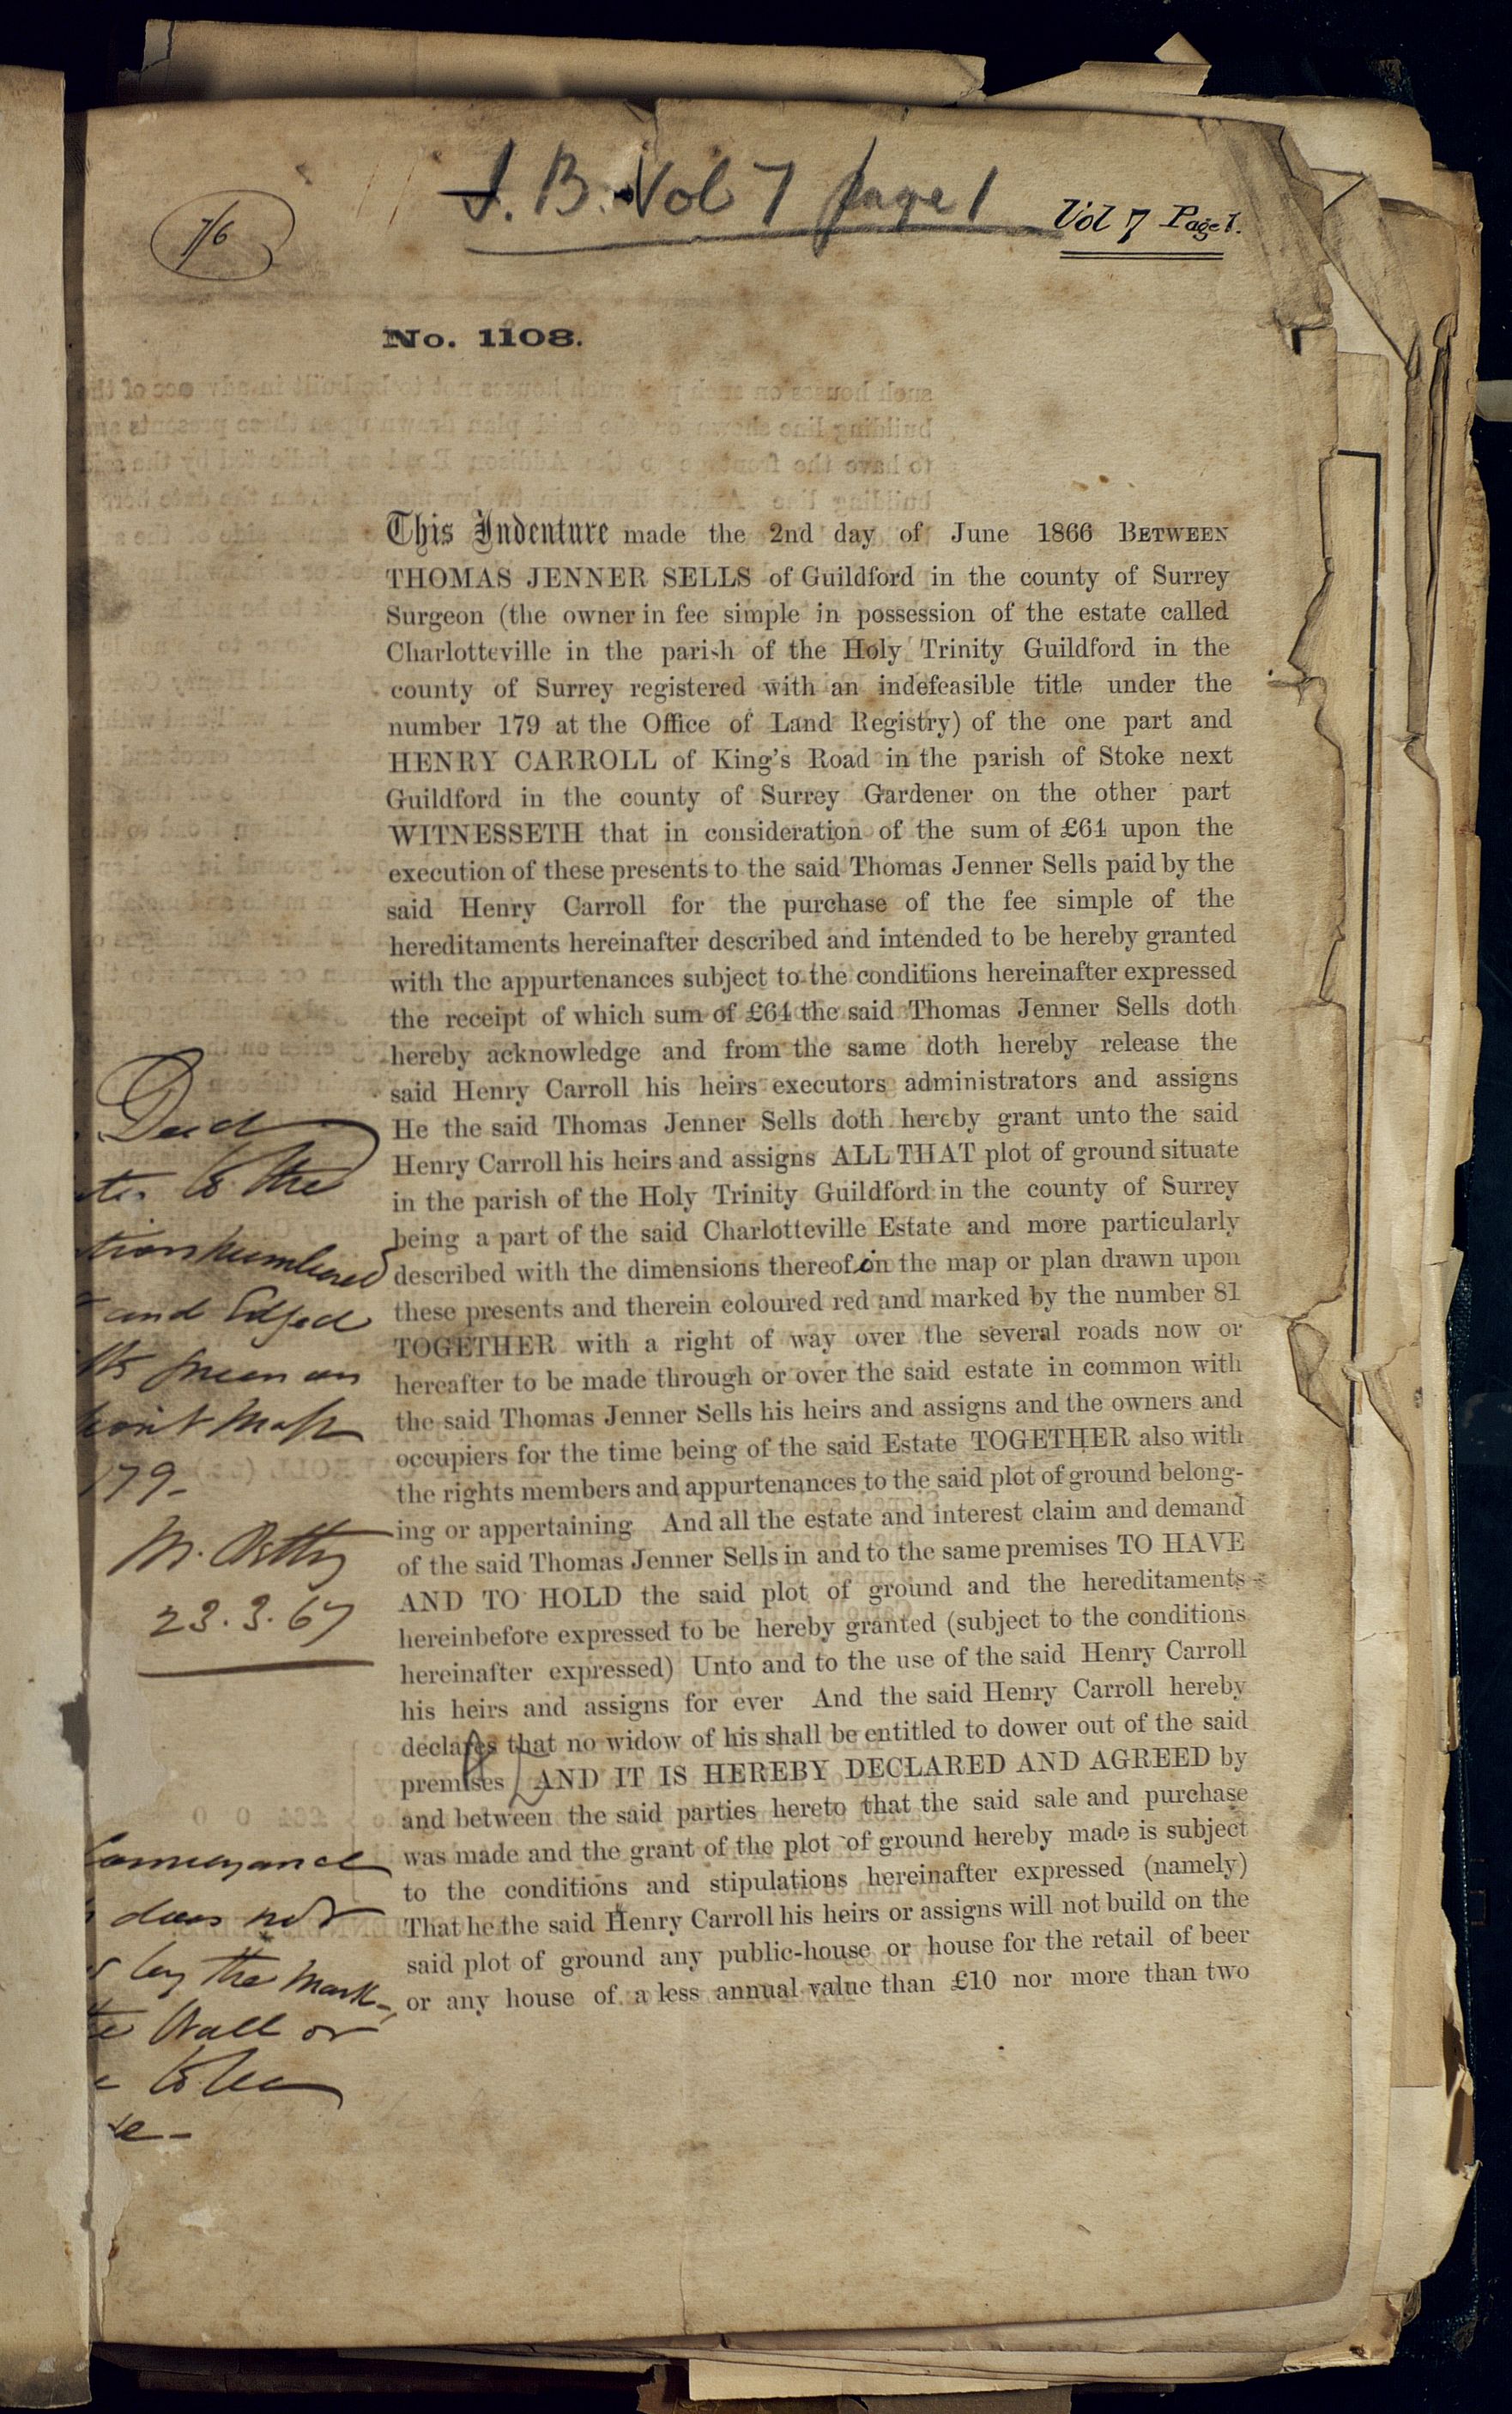 I.B. Vol 7 page 1
Vol 7 Page 1.
7/6
No. 1108.
This Indenture made the 2nd day of June 1866 BETWEEN
THOMAS JENNER SELLS of Guildford in the county of Surrey
Surgeon (the owner in fee simple in possession of the estate called
Charlotteville in the parish of the Holy Trinity Guildford in the
county of Surrey registered with an indefeasible title under the
number 179 at the Office of Land Registry) of the one part and
HENRY CARROLL of King's Road in the parish of Stoke next
Guildford in the county of Surrey Gardener on the other part
WITNESSETH that in consideration of the sum of £64 upon the
execution of these presents to the said Thomas Jenner Sells paid by the
said Henry Carroll for the purchase of the fee simple of the
hereditaments hereinafter described and intended to be hereby granted
with the appurtenances subject to the conditions hereinafter expressed
the receipt of which sum of £64 the said Thomas Jenner Sells doth
hereby acknowledge and from the same doth hereby release the
said Henry Carroll his heirs executors administrators and assigns
He the said Thomas Jenner Sells doth hereby grant unto the said
Henry Carroll his heirs and assigns ALL THAT plot of ground situate
in the parish of the Holy Trinity Guildford in the county of Surrey
being a part of the said Charlotteville Estate and more particularly
described with the dimensions thereof in the map or plan drawn upon
these presents and therein coloured red and marked by the number 81
TOGETHER with a right of way over the several roads now or
hereafter to be made through or over the said estate in common with
the said Thomas Jenner Sells his heirs and assigns and the owners and
occupiers for the time being of the said Estate TOGETHER also with
the rights members and appurtenances to the said plot of ground belong-
ing or appertaining And all the estate and interest claim and demand
of the said Thomas Jenner Sells in and to the same premises TO HAVE
AND TO HOLD the said plot of ground and the hereditaments
hereinbefore expressed to be hereby granted (subject to the conditions
hereinafter expressed) Unto and to the use of the said Henry Carroll
his heirs and assigns for ever And the said Henry Carroll hereby
declares that no widow of his shall be entitled to dower out of the said
premises AND IT IS HEREBY DECLARED AND AGREED by
and between the said parties hereto that the said sale and purchase
was made and the grant of the plot of ground hereby made is subject
to the conditions and stipulations hereinafter expressed (namely)
That he the said Henry Carroll his heirs or assigns will not build on the
said plot of ground any public-house or house for the retail of beer
or any house of a less annual value than £10 nor more than two
Deed
to the
numbered
and Edged
green on
Map
179-
23.3.67
Conveyance
does not
by the mark
Wall or
to be